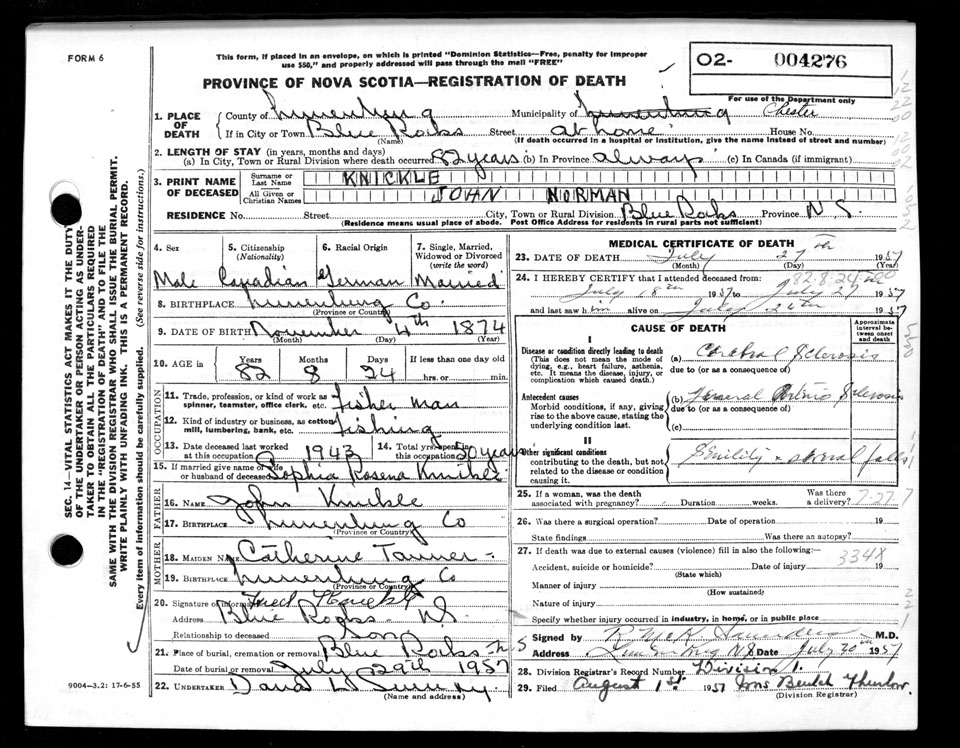 FORM 6
This form, if placed in an envelope, on which is printed "Dominion Statistics—Free, penalty for improper
use $50," and properly addressed will pass through the mail "FREE"
PROVINCE OF NOVA SCOTIA—REGISTRATION OF DEATH
02- 004276
For use of the Department only
1. PLACE OF DEATH
County of Lunenburg Municipality of Lunenburg Chester
If in City or Town Blue Rocks Street at home House No.
(Name) (If death occurred in a hospital or institution, give the name instead of street and number)
2. LENGTH OF STAY (in years, months and days)
(a) In City, Town or Rural Division where death occurred 82 years (b) In Province always (c) In Canada (if immigrant)
3. PRINT NAME OF DECEASED
Surname or Last Name KNICKLE
All Given or Christian Names JOHN NORMAN
RESIDENCE No. Street City, Town or Rural Division Blue Rocks Province N.S.
(Residence means usual place of abode. Post Office Address for residents in rural parts not sufficient)
4. Sex 5. Citizenship (Nationality) 6. Racial Origin 7. Single, Married, Widowed or Divorced (write the word)
Male Canadian German Married
8. BIRTHPLACE Lunenburg Co.
(Province or County)
9. DATE OF BIRTH November 4th 1874
(Month) (Day) (Year)
10. AGE Years Months Days If less than one day old
82 8 24 hrs. or min.
OCCUPATION
11. Trade, profession, or kind of work as spinner, teamster, office clerk, etc. Fisher man
12. Kind of industry or business, as cotton mill, lumbering, bank, etc. fishing
13. Date deceased last worked at this occupation 1943 14. Total yrs. spent in this occupation 50 years
15. If married give name of wife or husband of deceased Sophia Rosena Knickle
FATHER
16. NAME John Knickle
17. BIRTHPLACE Lunenburg Co
(Province or Country)
MOTHER
18. MAIDEN NAME Catherine Tanner
19. BIRTHPLACE Lunenburg Co
(Province or Country)
20. Signature of informant Fred Knickle
Address Blue Rocks NS
Relationship to deceased Son
21. Place of burial, cremation or removal Blue Rocks N S
Date of burial or removal July 29th 1957
22. UNDERTAKER
(Name and address)
MEDICAL CERTIFICATE OF DEATH
23. DATE OF DEATH July 27th 1957
(Month) (Day) (Year)
82-8-24
24. I HEREBY CERTIFY that I attended deceased from:
July 18th 1957 to July 27 1957
and last saw him alive on July 26th 1957
CAUSE OF DEATH
Approximate interval between onset and death
I
Disease or condition directly leading to death (a) Cerebral Sclerosis
(This does not mean the mode of dying, e.g., heart failure, asthenia, etc. It means the disease, injury, or complication which caused death.)
due to (or as a consequence of)
Antecedent causes (b) General Arterio Sclerosis
Morbid conditions, if any, giving rise to the above cause, stating the underlying condition last.
due to (or as a consequence of)
(c)
II
Other significant conditions Senility & several falls
contributing to the death, but not related to the disease or condition causing it.
25. If a woman, was the death associated with pregnancy? Duration weeks. Was there a delivery?
7-27-7
26. Was there a surgical operation? Date of operation 19
State findings Was there an autopsy?
27. If death was due to external causes (violence) fill in also the following:—
334X
Accident, suicide or homicide? Date of injury 19
(State which)
Manner of injury
(How sustained)
Nature of injury
Specify whether injury occurred in industry, in home, or in public place
Signed by R McK Saunders M.D.
Address Lunenburg N S Date July 30th 1957
28. Division Registrar's Record Number Division 1.
29. Filed August 1st 1957 Mrs Beulah
(Division Registrar)
SEC. 14—VITAL STATISTICS ACT MAKES IT THE DUTY
OF THE UNDERTAKER OR PERSON ACTING AS UNDER-
TAKER TO OBTAIN ALL THE PARTICULARS REQUIRED
IN THE "REGISTRATION OF DEATH" AND TO FILE THE
SAME WITH THE DIVISION REGISTRAR WHO SHALL ISSUE THE BURIAL PERMIT.
WRITE PLAINLY WITH UNFADING INK. THIS IS A PERMANENT RECORD.
Every item of information should be carefully supplied. (See reverse side for instructions.)
9004—3.2: 17-6-55